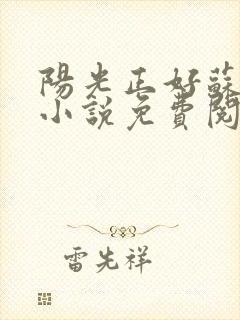 陽光正好蘇
小說免費閱
雷先祥